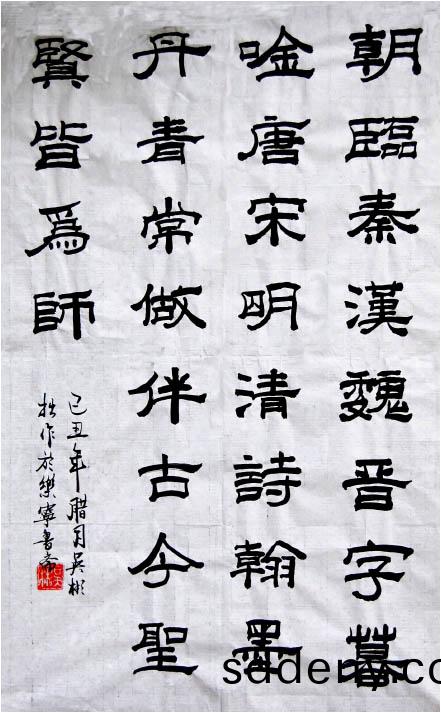 朝臨秦漢魏晋字暮
唫唐宋明清詩翰墨
丹青常做伴古今聖
賢皆為師
己丑年腊月吴彬
拙作於樂寧書斋
sadeny.co